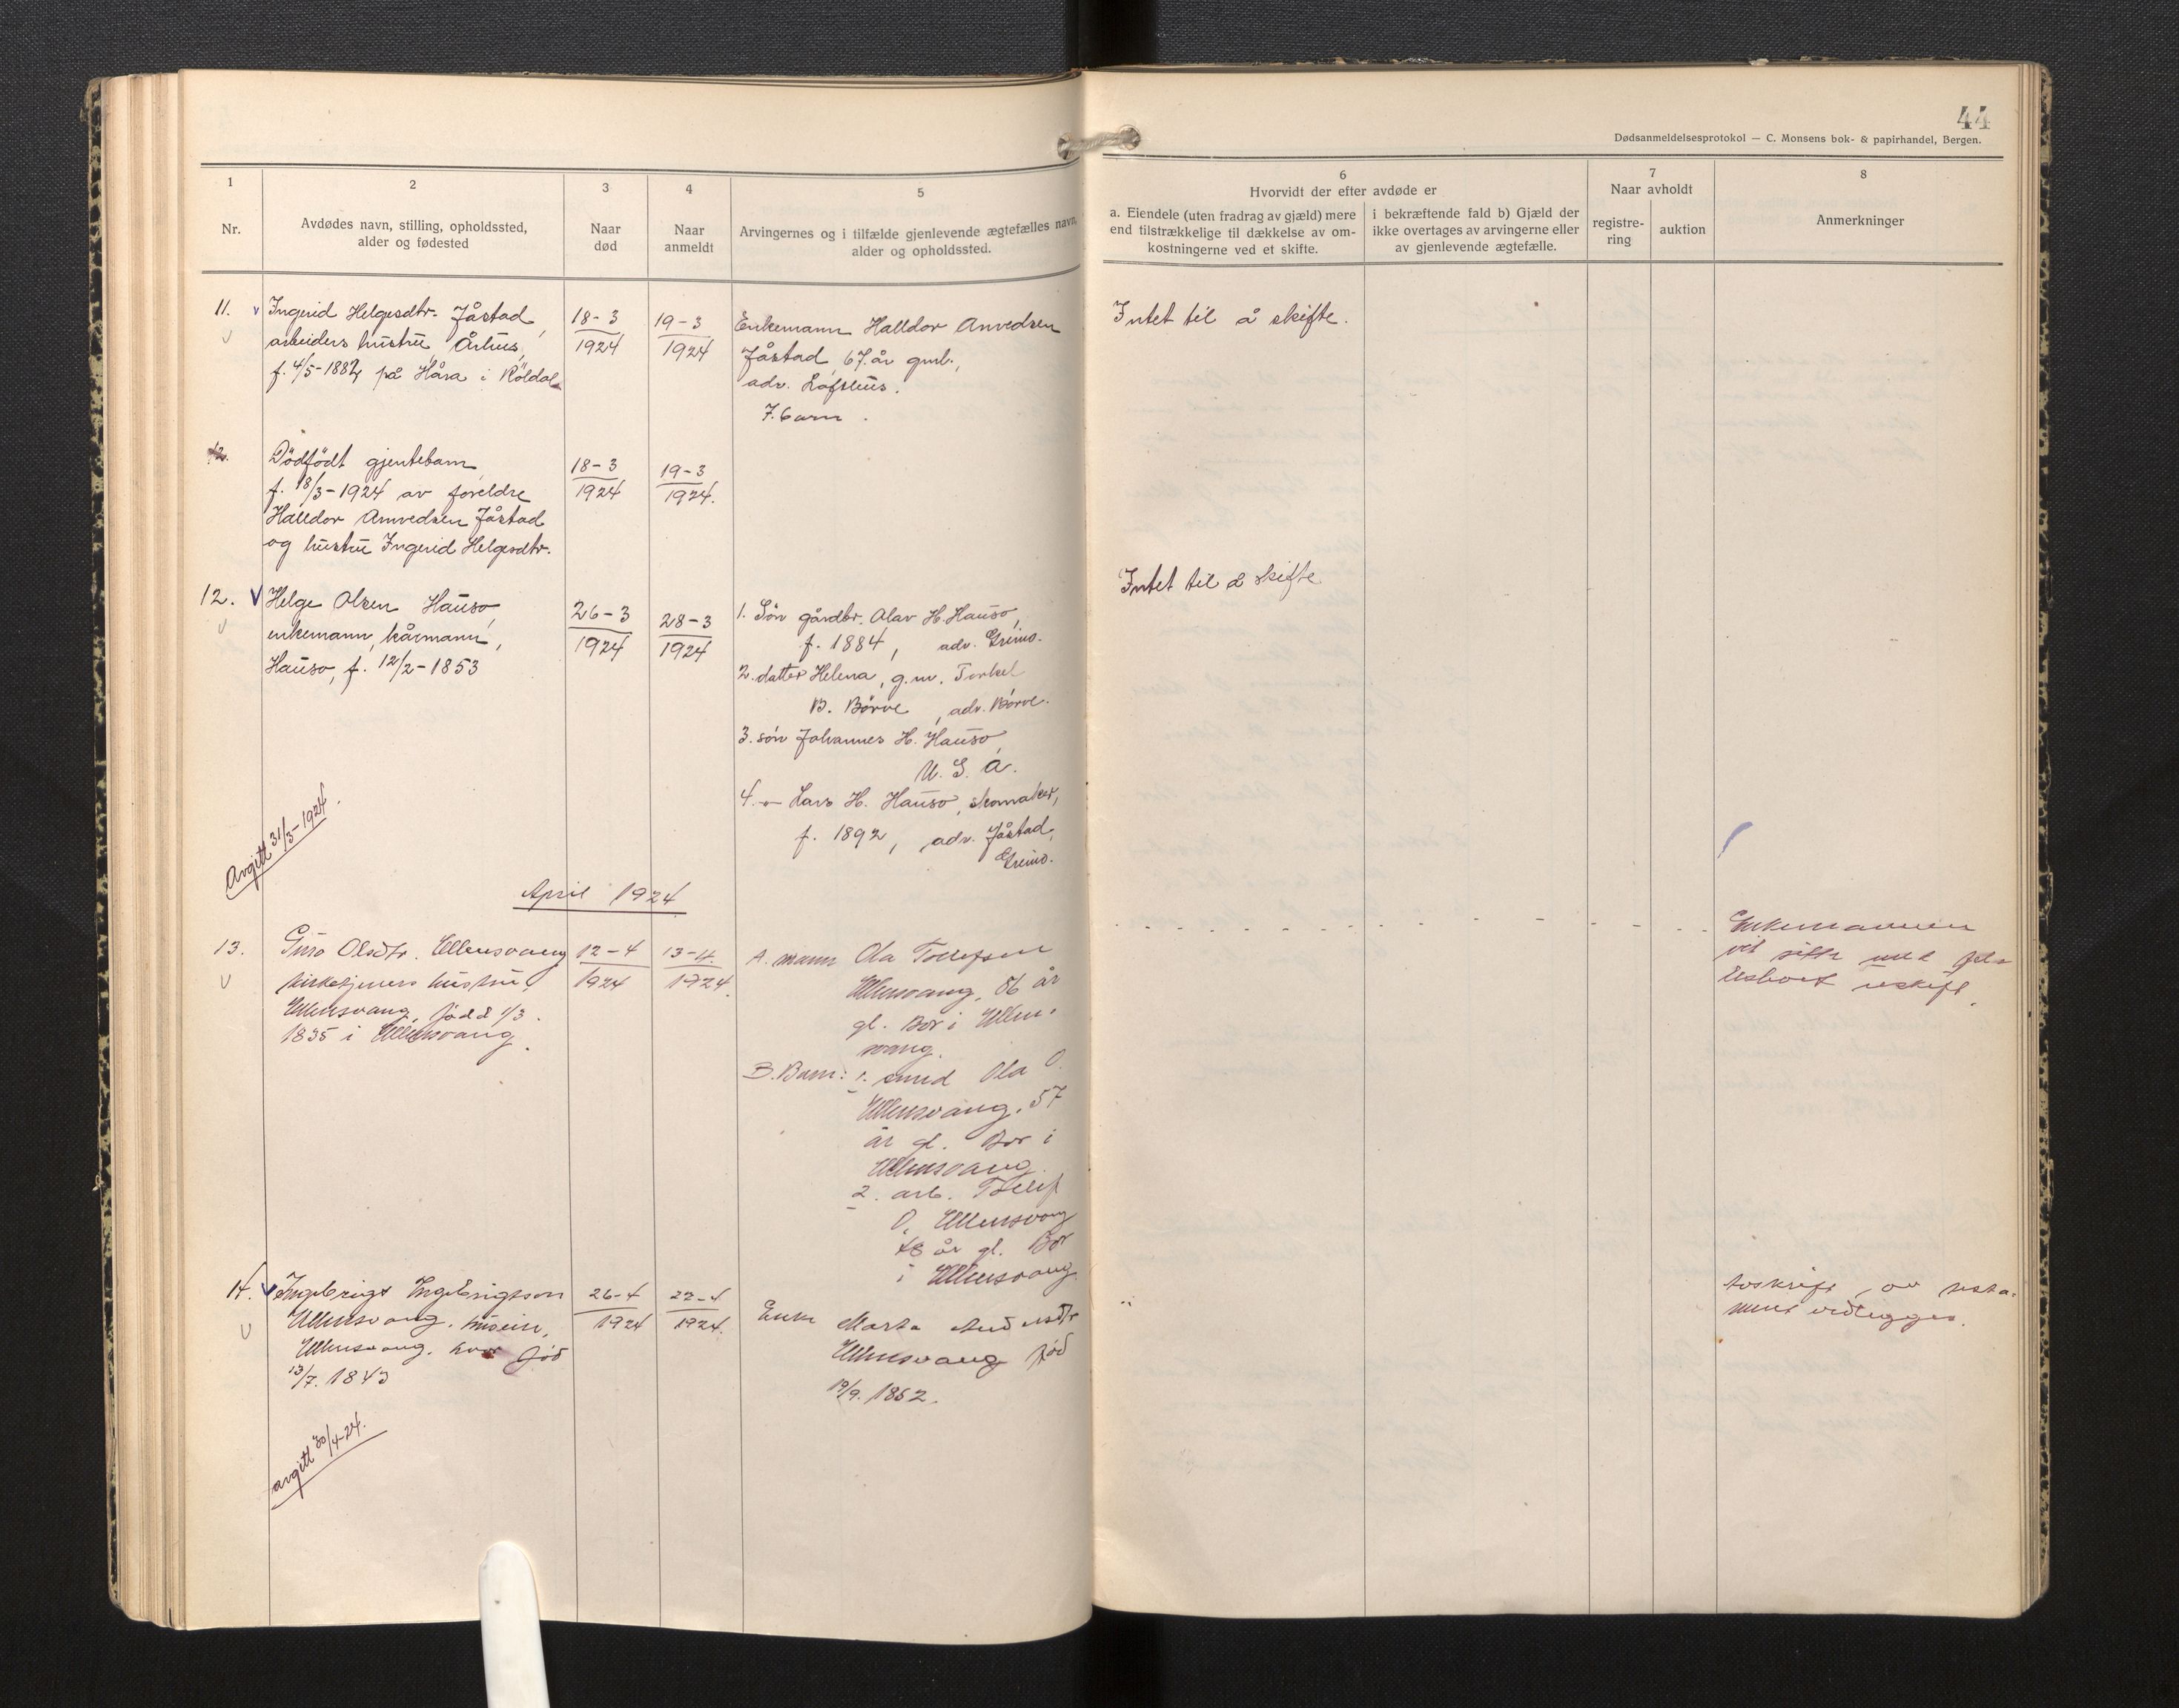 44
Dødsanmeldelsesprotokol — C. Monsens bok- & papirhandel, Bergen.
1
2
3
4
5
6
7
8
Nr.
Avdødes navn, stilling, opholdssted,
alder og fødested
Naar
død
Naar
anmeldt
Arvingernes og i tilfælde gjenlevende ægtefælles navn,
alder og opholdssted.
Hvorvidt der efter avdøde er
a. Eiendele (uten fradrag av gjæld) mere
end tilstrækkelige til dækkelse av om-
kostningerne ved et skifte.
i bekræftende fald b) Gjæld der
ikke overtages av arvingerne eller
av gjenlevende ægtefælle.
Naar avholdt
registre-
ring
auktion
Anmerkninger
11.
Ingerid Helgesdtr. Jåstad,
arbeiders hustru Århus,
f. 4/5-1882, på Håra i Röldal
18-3
1924
19-3
1924
Enkemann Halldor Amvedsen
Jåstad, 67 år gml.,
adr. Lofthus.
7 barn.
Intet til å skifte.
12.
Dödfödt gjentebarn,
f. 18/3-1924 av foreldre
Halldor Amvedsen Jåstad
og hustru Ingerid Helgesdtr.
18-3
1924
19-3
1924.
12.
Helge Olsen Hauso,
enkemann, kårmann,
Hauso, f. 12/2-1853
26-3
1924
28-3
1924
1. Sön gårdbr. Olav H. Hauso,
f. 1884, adr. Grimo.
2. datter Helena, g.m. Torkel
B. Börve, adr. Börve.
3. sön Johannes H. Hauso,
U.S.A.
4. -"- Lars H. Hauso, skomaker,
f. 1892, adr. Jåstad,
Grimo.
Intet til å skifte
Avgitt 31/3-1924.
April 1924
13.
Guro Olsdtr. Ullensvang
kirketjeners hustru,
Ullensvang, född 1/3.
1835 i Ullensvang.
12-4
1924
13-4.
1924.
A. mann Ola Tollefsen
Ullensvang, 86 år
gl. Bor i Ullens-
vang.
B. Barn: 1. smed Ola O.
Ullensvang, 57
år gl. Bor i
Ullensvang.
2. arb. Tollef
O. Ullensvang
48 år gl. Bor
i Ullensvang
Enkemannen
vil sitte med fel-
lesboet uskift.
14.
Ingebrigt Ingebrigtson
Ullensvang,
Ullensvang, hvor född
13/7. 1843
26-4
1924
22-4
1924.
Enke Marta
Ullensvang född
19/9. 1862.
av testa-
ment vedlegges.
avgitt 30/4-24.